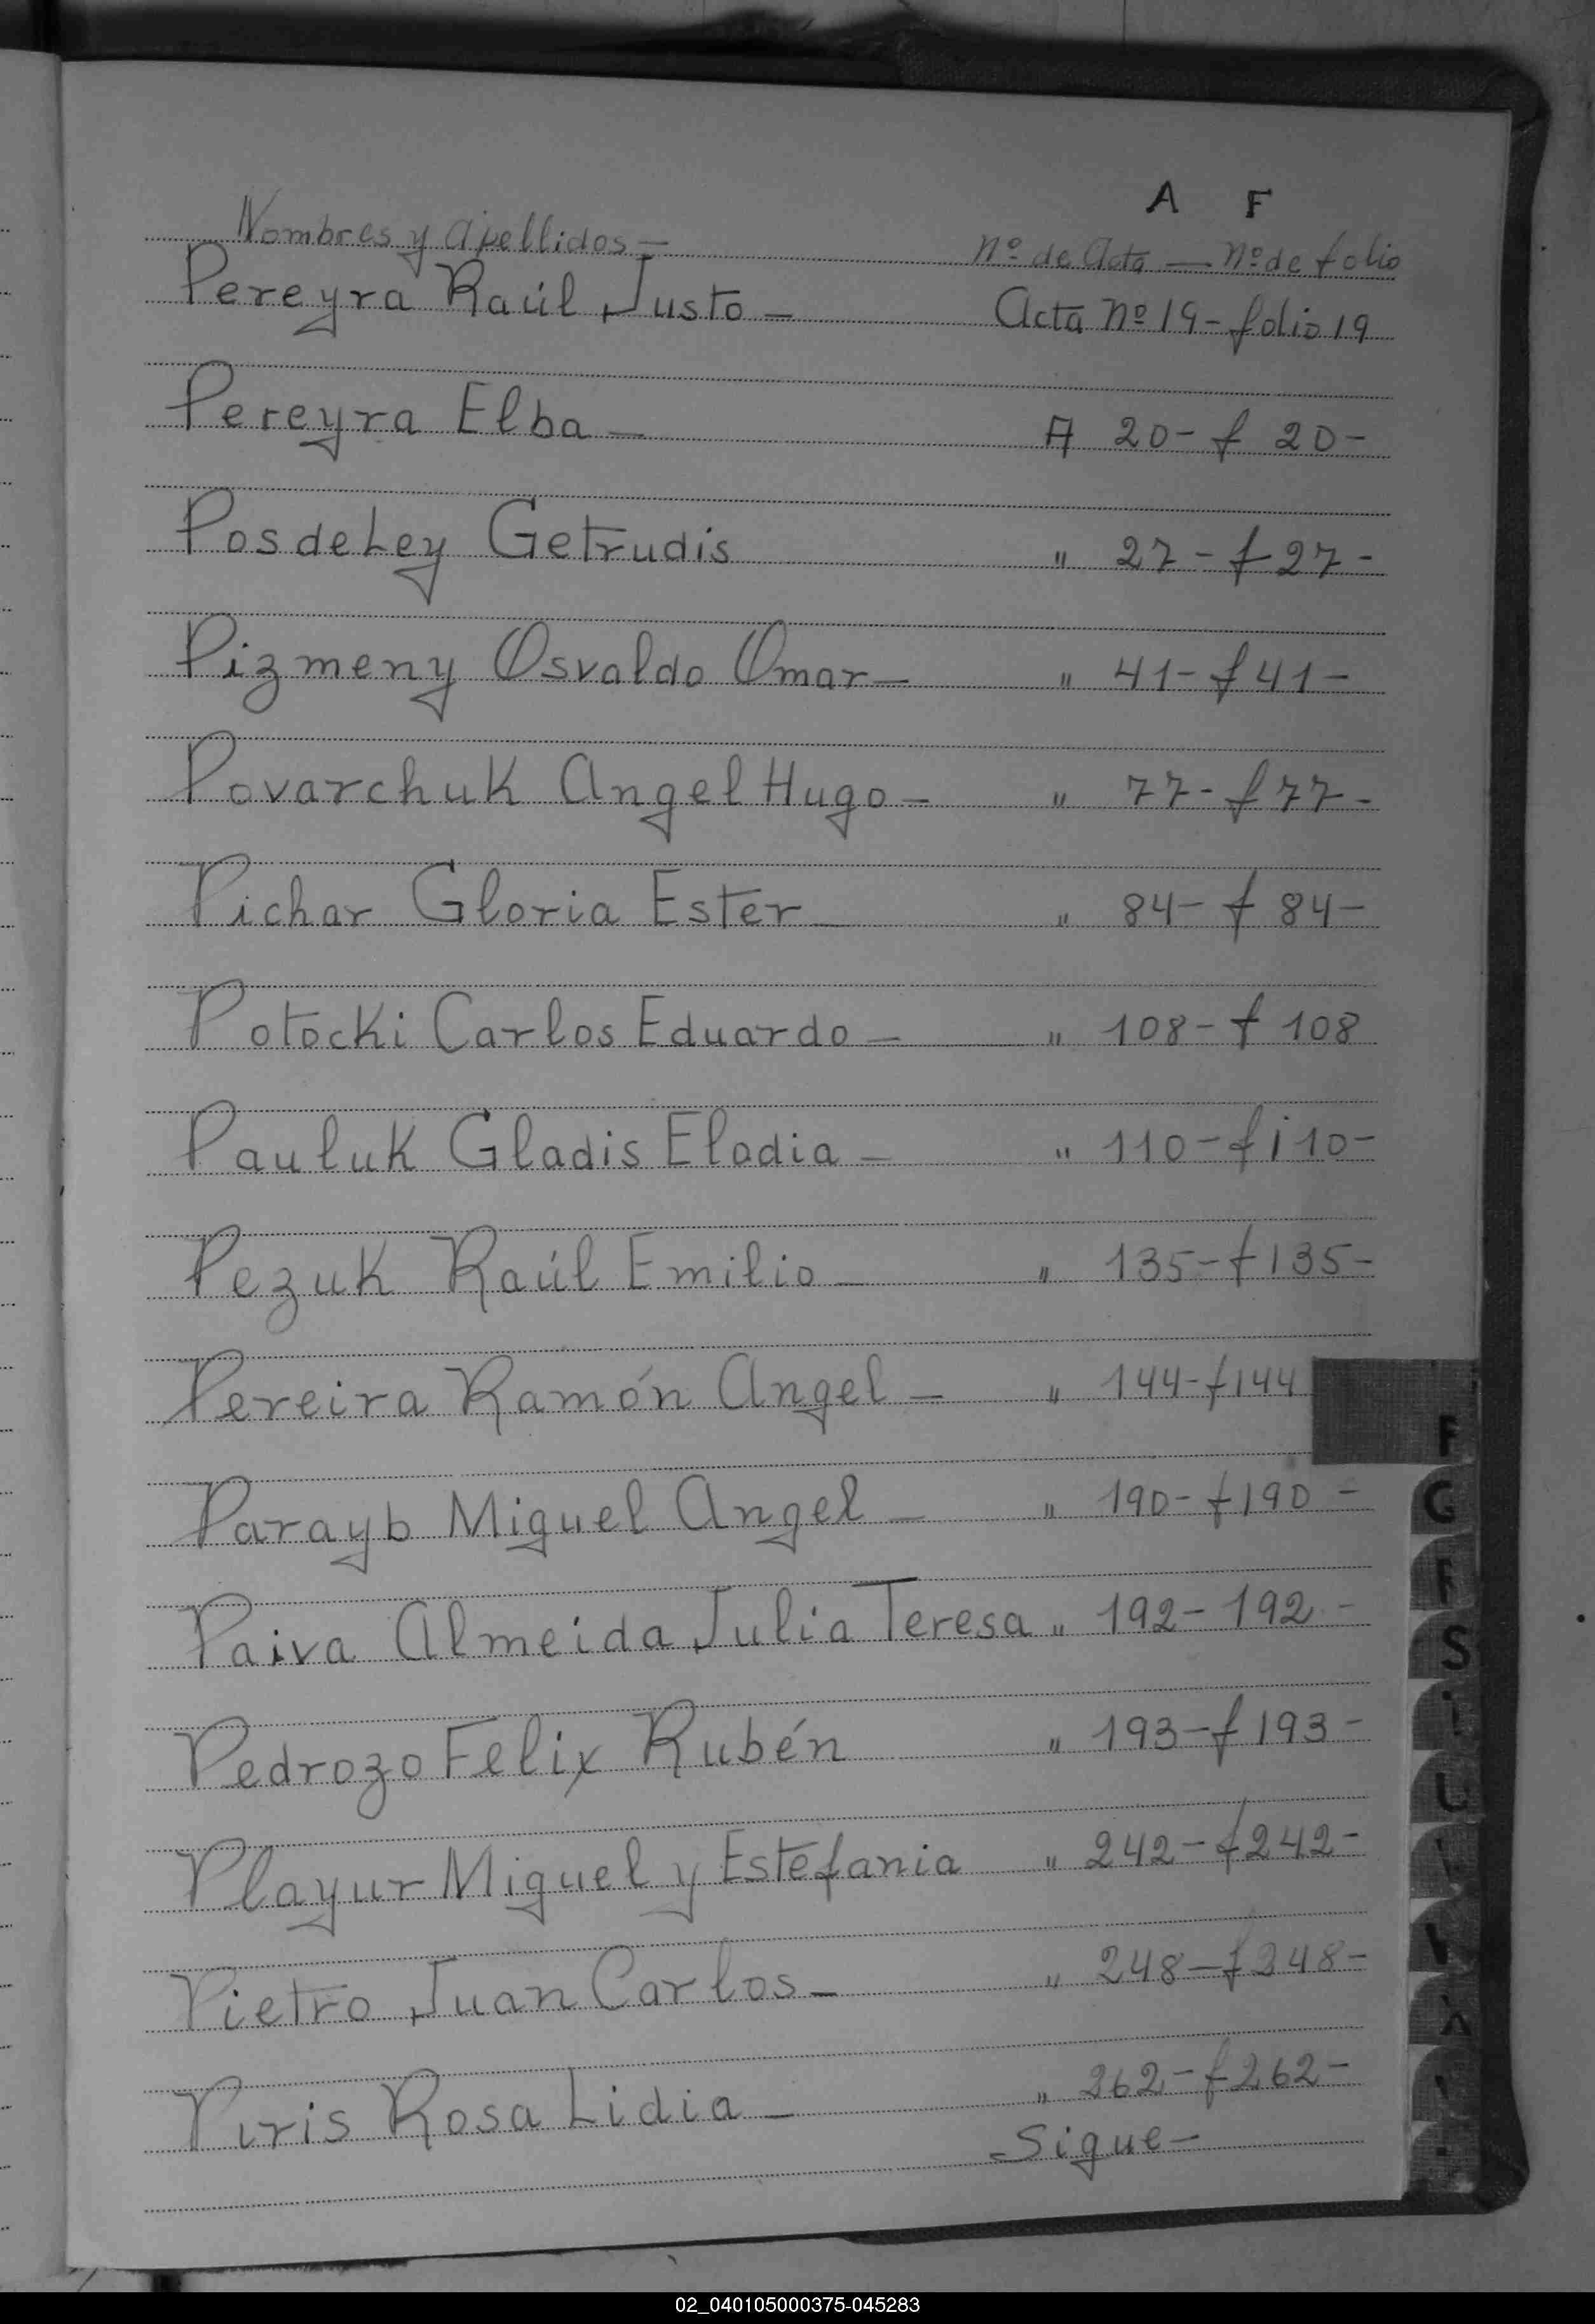 A F
Nombres y apellidos — nº de acta — nº de folio
Pereyra Raúl Justo — Acta nº 19 - folio 19
Pereyra Elba — A 20 - f 20 -
Posdeley Getrudis " 27 - f 27 -
Pizmeny Osvaldo Omar — " 41 - f 41 -
Povarchuk Angel Hugo — " 77 - f 77 -
Pichar Gloria Ester — " 84 - f 84 -
Potocki Carlos Eduardo — " 108 - f 108
Pauluk Gladis Elodia — " 110 - f 110 -
Pezuk Raúl Emilio — " 135 - f 135 -
Pereira Ramón Angel — " 144 - f 144
Parayb Miguel Angel — " 190 - f 190 -
Paiva Almeida Julia Teresa " 192 - 192 -
Pedrozo Felix Rubén " 193 - f 193 -
Playur Miguel y Estefania " 242 - f 242 -
Pietro Juan Carlos — " 248 - f 248 -
Piris Rosa Lidia — " 262 - f 262 -
Sigue -
G
S
02_040105000375-045283